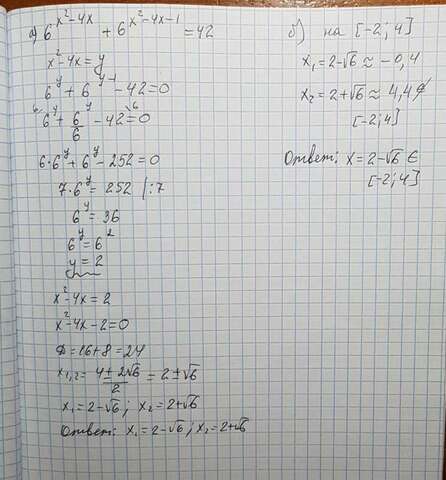 а) 6^(x²-4x) + 6^(x²-4x-1) = 42
x²-4x = y
6^y + 6^(y-1) - 42 = 0
⁶⁾6^y + 6^y/6 - 42⁽⁶ = 0
6·6^y + 6^y - 252 = 0
7·6^y = 252 |:7
6^y = 36
6^y = 6²
y = 2
x²-4x = 2
x²-4x-2 = 0
D = 16+8 = 24
x₁,₂ = (4 ± 2√6)/2 = 2 ± √6
x₁ = 2-√6 ; x₂ = 2+√6
Ответ: x₁ = 2-√6 ; x₂ = 2+√6
б) на [-2; 4]
x₁ = 2-√6 ≈ -0,4
x₂ = 2+√6 ≈ 4,4 ∉
[-2; 4]
Ответ: x = 2-√6 ∈
[-2; 4]